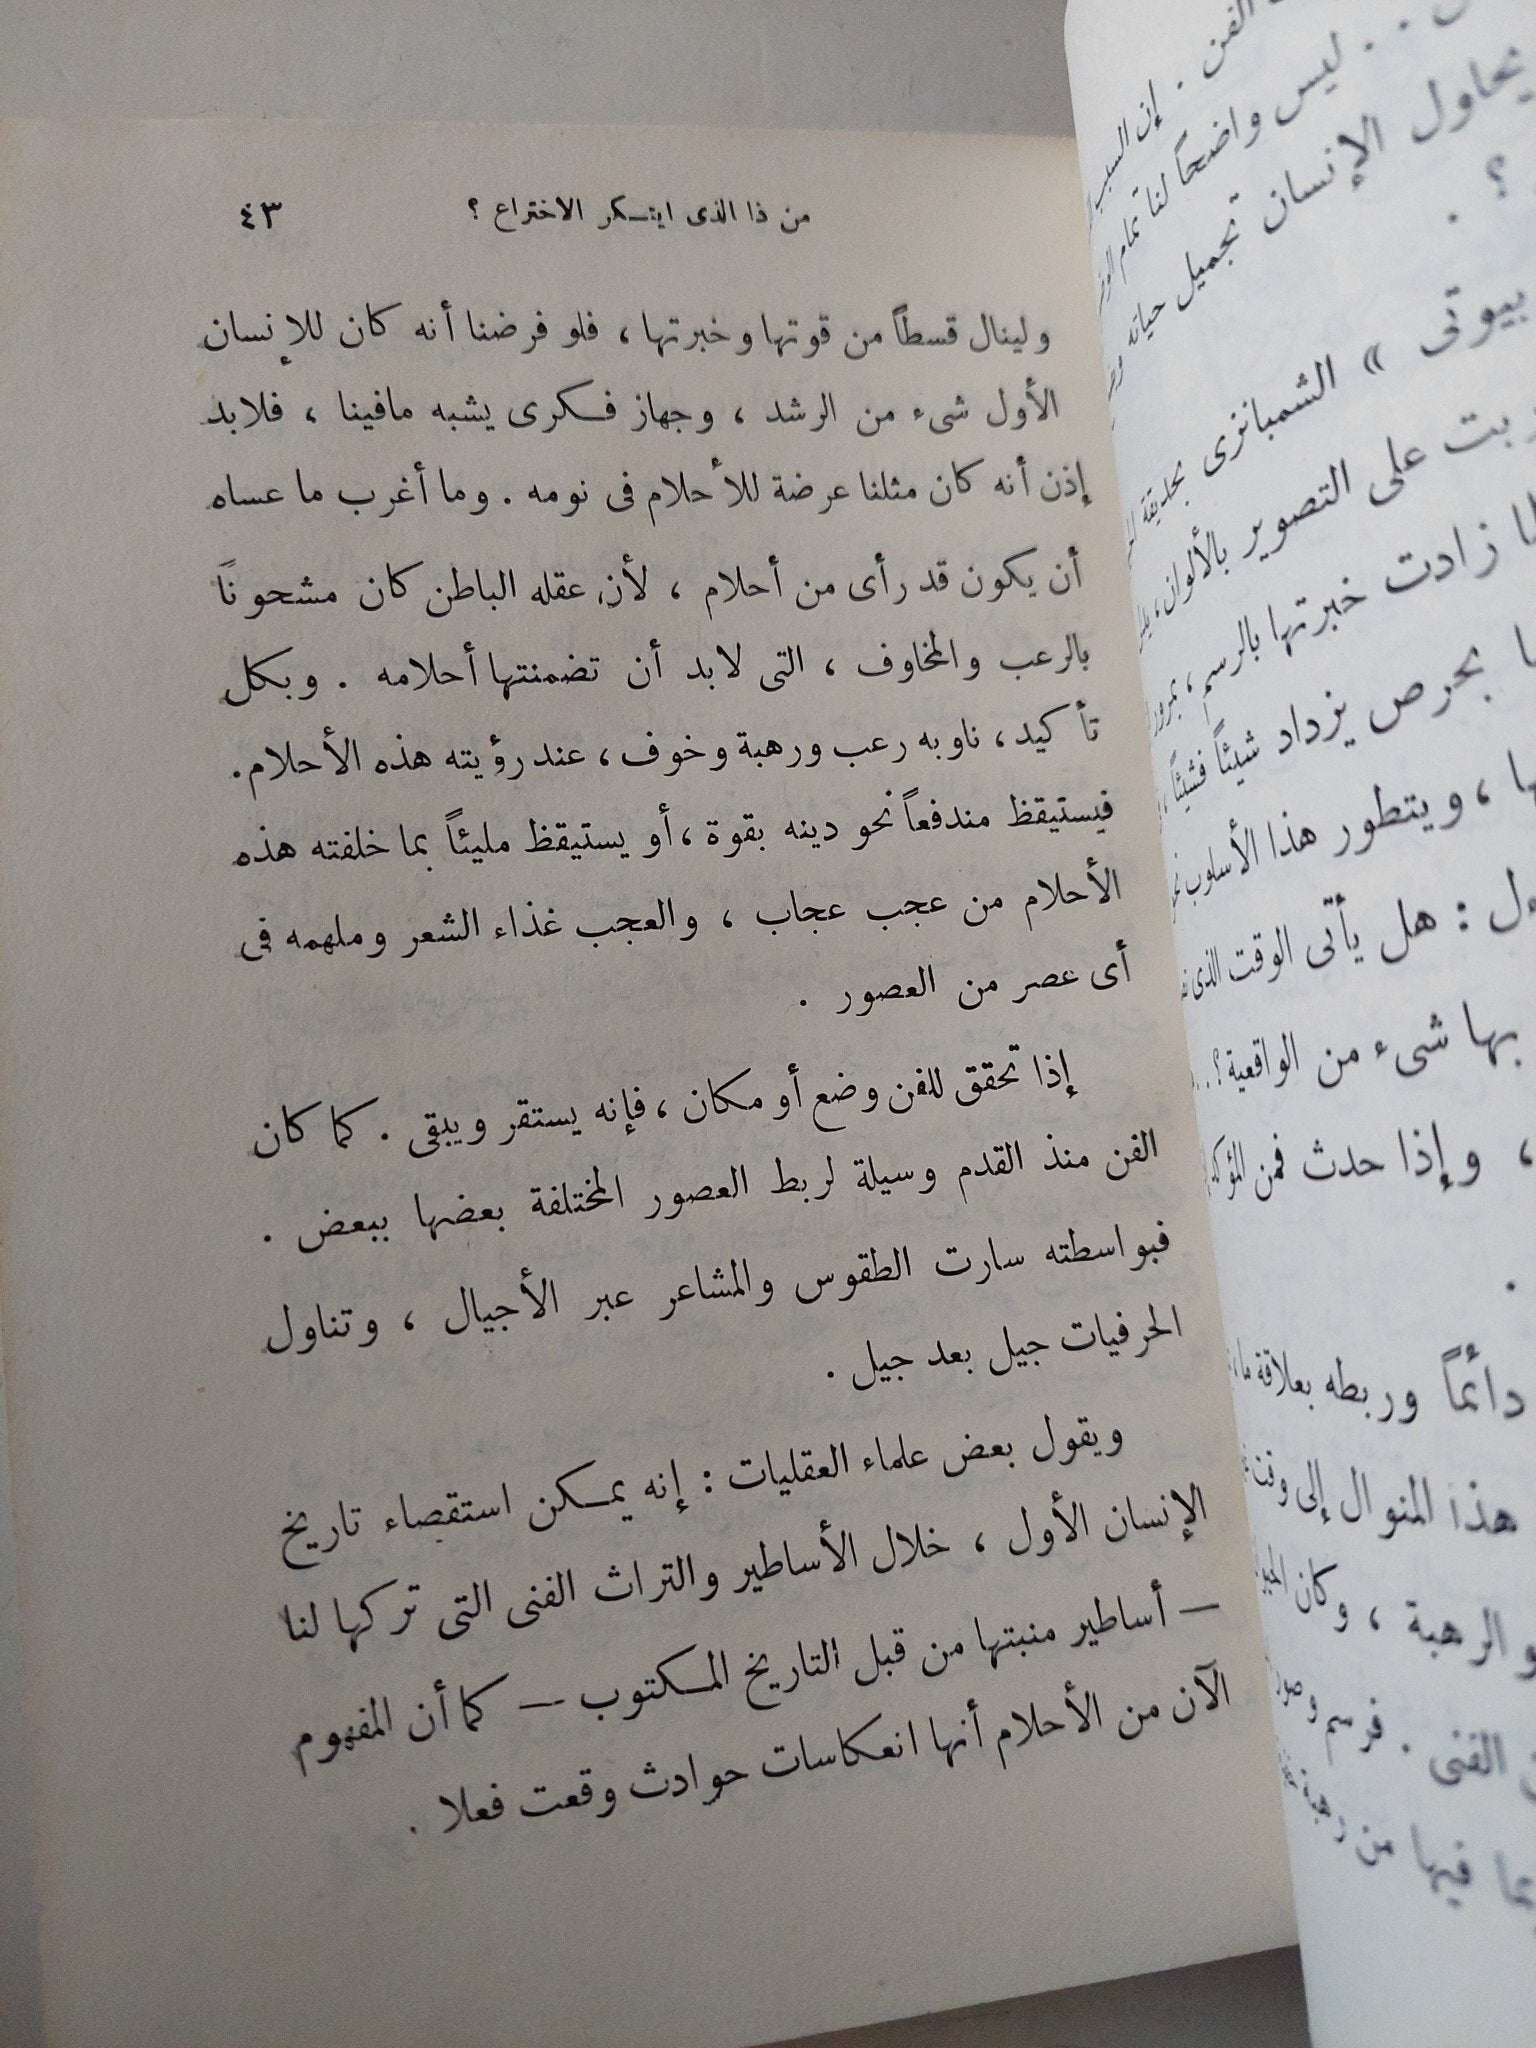 من ذا الذى ابتكر الاختراع ؟ ٤٣
ولينال قسطاً من قوتها وخبرتها ، فلو فرضنا أنه كان للإنسان
الأول شىء من الرشد ، وجهاز فكرى يشبه مافينا ، فلابد
إذن أنه كان مثلنا عرضة للأحلام فى نومه . وما أغرب ما عساه
أن يكون قد رأى من أحلام ، لأن عقله الباطن كان مشحوناً
بالرعب والمخاوف ، التى لابد أن تضمنتها أحلامه . وبكل
تأكيد ، ناوبه رعب ورهبة وخوف ، عند رؤيته هذه الأحلام .
فيستيقظ مندفعاً نحو دينه بقوة ، أو يستيقظ مليئاً بما خلفته هذه
الأحلام من عجب عجاب ، والعجب غذاء الشعر وملهمه فى
أى عصر من العصور .
إذا تحقق للفن وضع أو مكان ، فإنه يستقر ويبقى . كما كان
الفن منذ القدم وسيلة لربط العصور المختلفة بعضها ببعض .
فبواسطته سارت الطقوس والمشاعر عبر الأجيال ، وتناول
الحرفيات جيل بعد جيل .
ويقول بعض علماء العقليات : إنه يمكن استقصاء تاريخ
الإنسان الأول ، خلال الأساطير والتراث الفنى التى تركها لنا
— أساطير منبتها من قبل التاريخ المكتوب — كما أن المفهوم
الآن من الأحلام أنها انعكاسات حوادث وقعت فعلا .
الفن . إن السبب
. . ليس واضحاً لنا تمام
يحاول الإنسان تجميل حياته
؟ .
بيوتى » الشمبانزى بحديقة
على التصوير بالألوان ،
زادت خبرتها بالرسم ، بمرور
بحرص يزداد شيئاً فشيئاً ،
، ويتطور هذا الأسلوب
: هل يأتى الوقت الذى
بها شىء من الواقعية ؟ . .
، وإذا حدث فمن
.
دائماً وربطه بعلاقة
هذا المنوال إلى
الرهبة ، وكان
الفنى . فرسم
فيها من